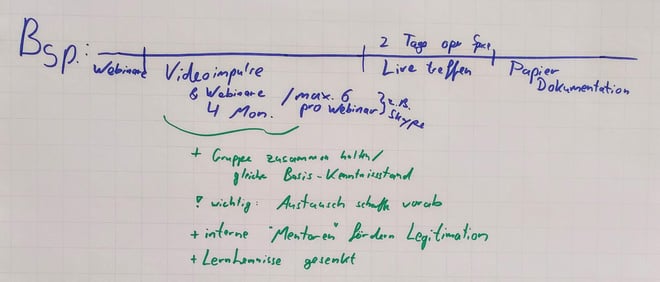 Bsp.:
2 Tage open Space
Webinare Videoimpulse Live treffen Papier Dokumentation
8 Webinare / max. 6 pro Webinar } z.B. Skype
4 Mon.
+ Gruppe zusammen halten/
gleiche Basis-Kenntnisstand
! wichtig: Austausch schaffe vorab
+ interne "Mentoren" fördern Legitimation
+ Lernhemnisse gesenkt